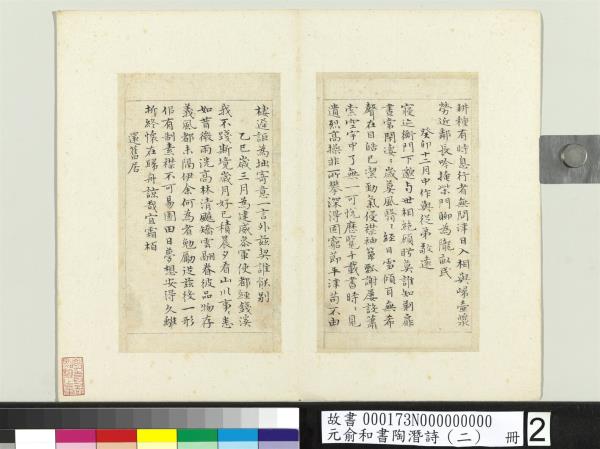 耕種有時息行者無問津日入相與歸壺漿
勞近鄰長吟掩柴門聊為隴畝民
癸卯十二月中作與從弟敬遠
寢迹衡門下邈與世相絕顧眄莫誰知荊扉
晝常閉凄凄歲暮風翳翳經日雪傾耳無希
聲在目皓已潔勁氣侵襟袖簞瓢謝屢設蕭
索空宇中了無一可悅歷覽千載書時時見
遺烈高操非所攀深得固窮節平津苟不由
棲遲詎為拙寄意一言外茲契誰能別
乙巳歲三月為建威參軍使都經錢溪
我不踐斯境歲月好已積晨夕看山川事事悉
如昔微雨洗高林清飇矯雲翮眷彼品物存
義風都未隔伊余何為者勉勵從茲役一形
似有制素襟不可易園田日夢想安得久離
析終懷在歸舟諒哉宜霜柏
還舊居
故書 000173N000000000
元俞和書陶潛詩(二) 冊 2